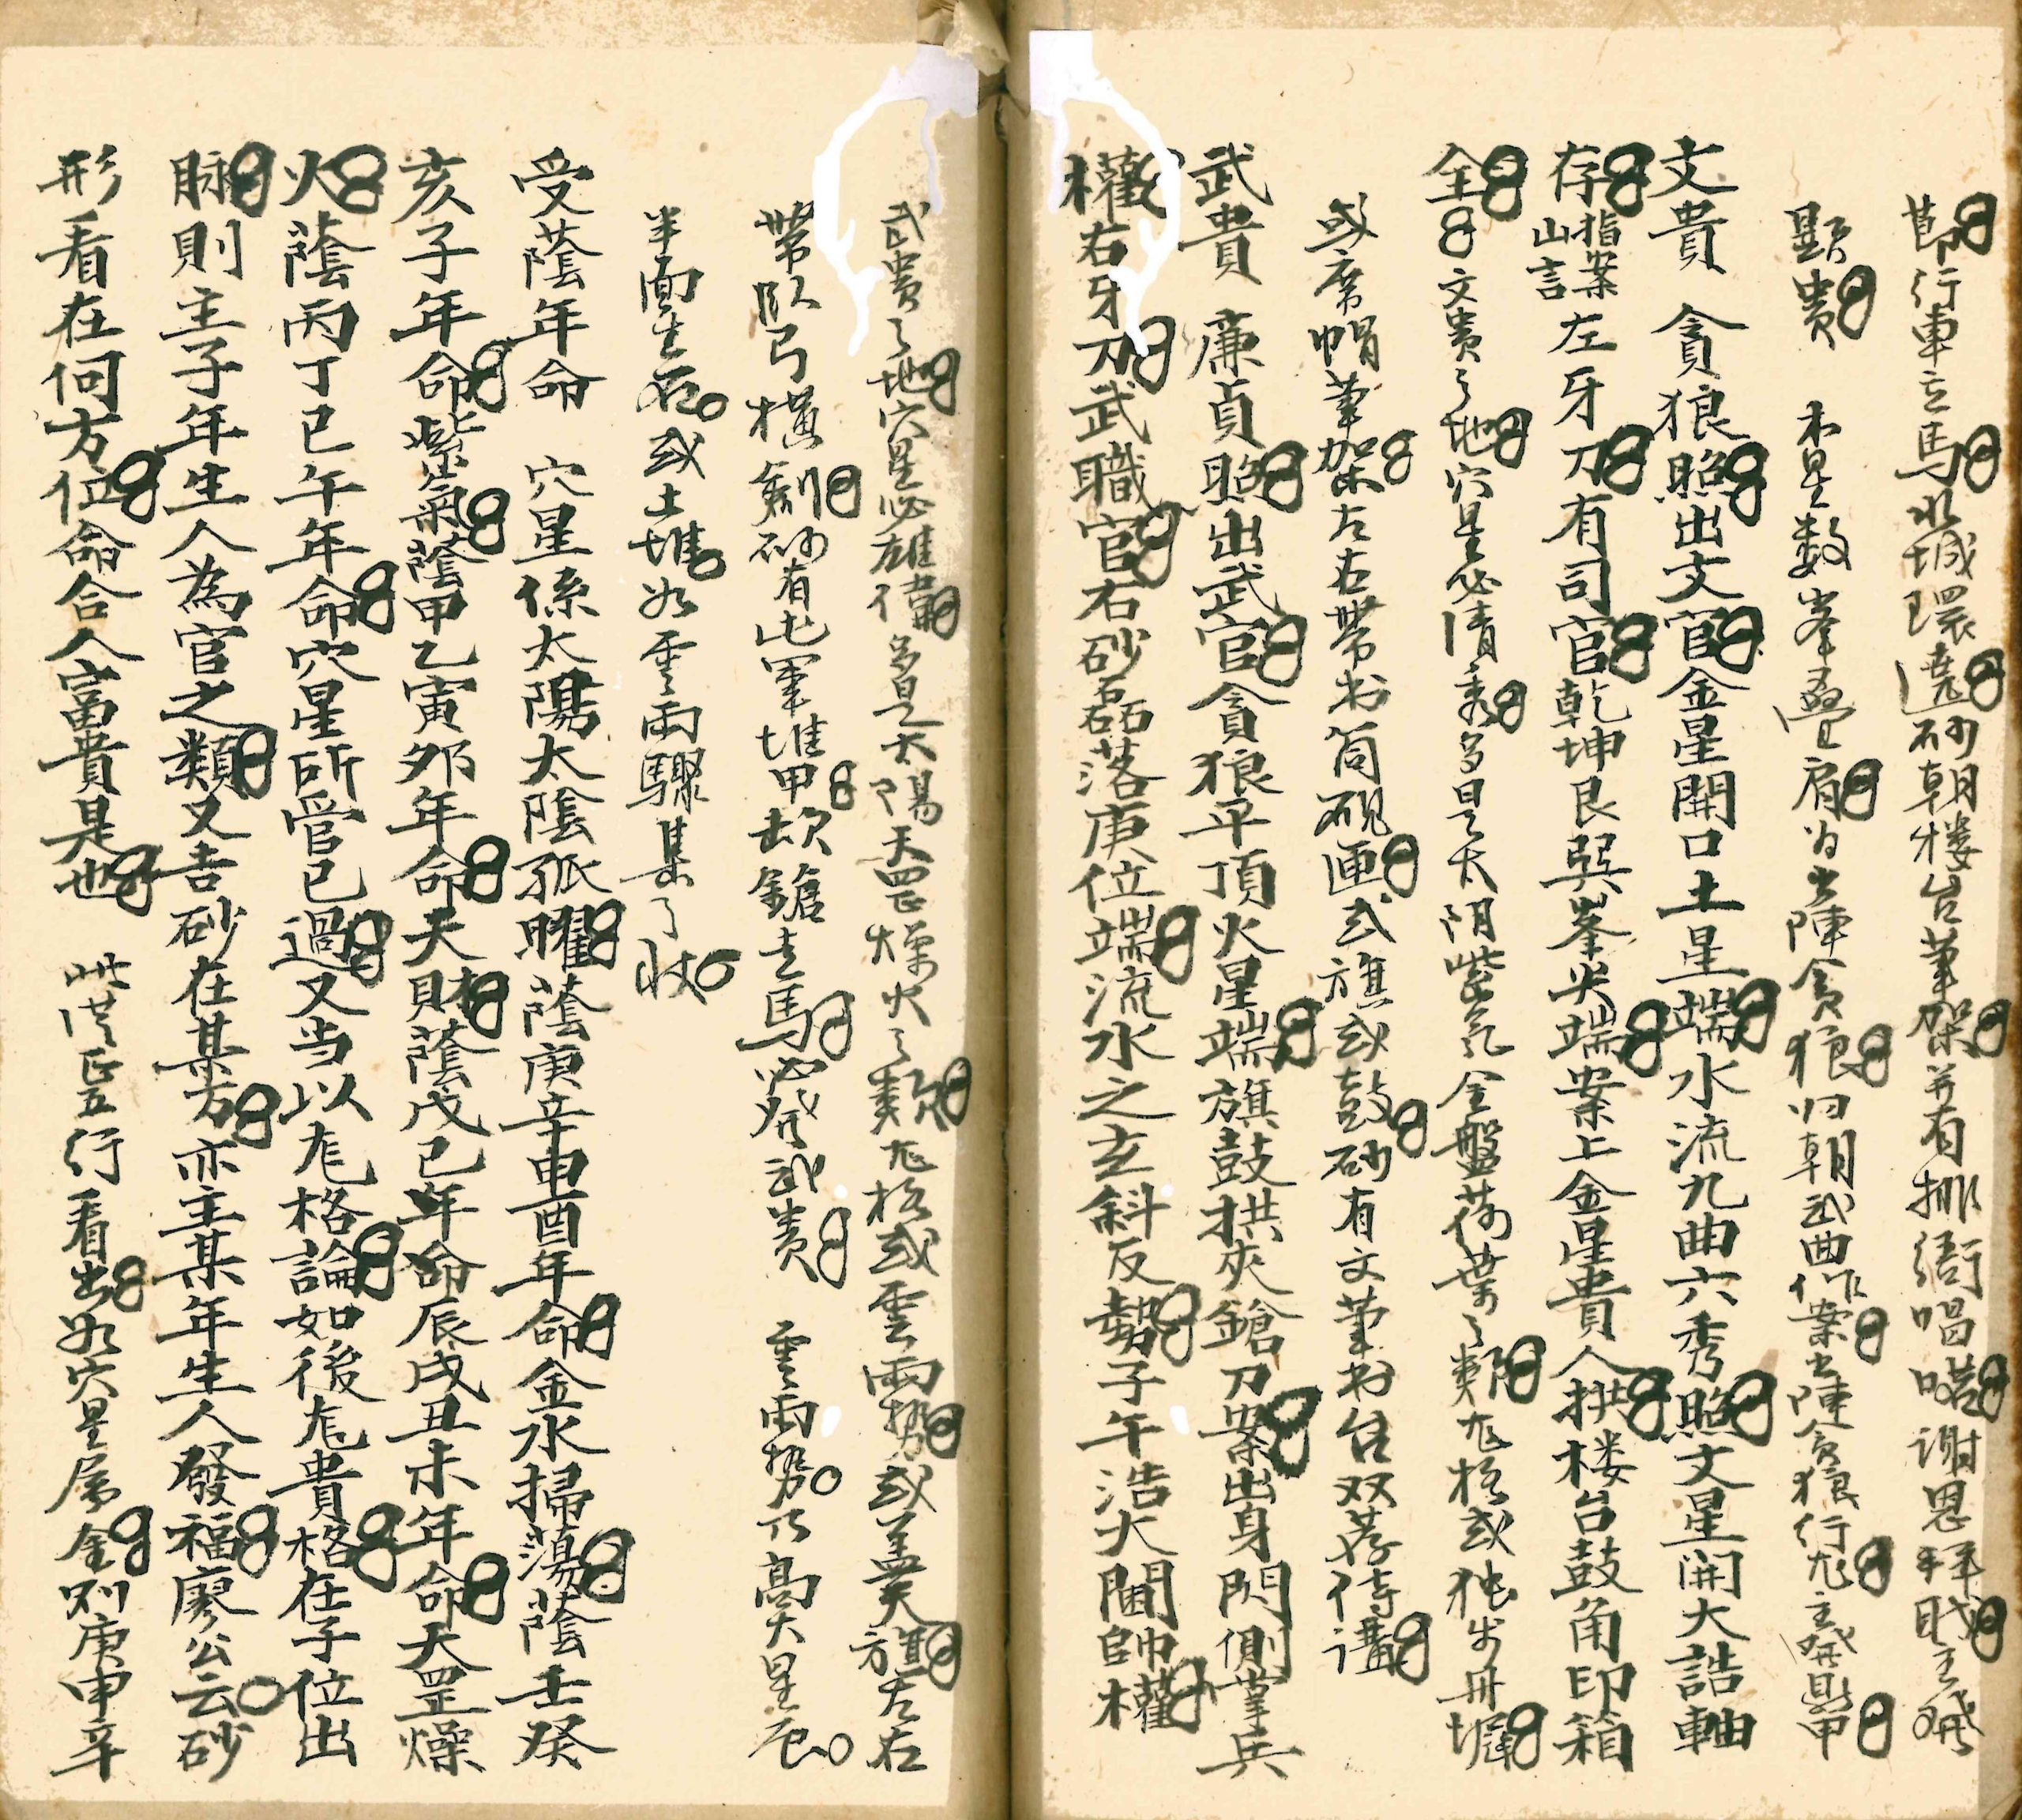 節行車立馬水城環遶砂朝楼台筆架并有排衙唱喏謝恩拜職主發
顯貴　木星数峯疊肩为出陣貪狼归朝武曲作案出陣貪狼行龙主發鼎甲
文貴　貪狼照出文官金星開口土星端水流九曲六秀照文星開大誥軸
存指案山言左牙刀有司官乾坤艮巽峯尖端案上金星貴人拱楼台鼓角印箱
全文贵之地穴星必清秀多是太阴紫气金盤荷葉之類龙格或独步丹墀
或席帽筆架左右带书筒硯匣或旗或鼓砂有文筆书台双荐侍講
武貴　廉貞照出武官貪狼平頂火星端旗鼓拱夾鎗刀案出身閃側掌兵
權右牙刀武職官右砂磊落庚位端流水之玄斜反勢子午浩大閫帥權
武贵之地穴星必雄偉多是太陽天罡燥火之類龙格或雲雨勢或盖天旗左右
帶臥弓橫劍砂有屯軍堆甲欹鎗走馬必發武贵　雲雨勢乃高大星辰
半面生石或土堆如雲雨驟集之状
受蔭年命　穴星係太陽太陰孤曜蔭庚辛申酉年命金水掃蕩蔭壬癸
亥子年命紫氣蔭甲乙寅夘年命天財蔭戊己年命辰戌丑未年命天罡燥
火蔭丙丁巳午年命穴星所管已過又当以龙格論如後龙貴格在子位出
脉則主子年生人為官之類又吉砂在某方亦主某年生人發福廖公云砂
形看在何方位命合人富貴是也　此從正五行看出如穴星属金则庚申辛